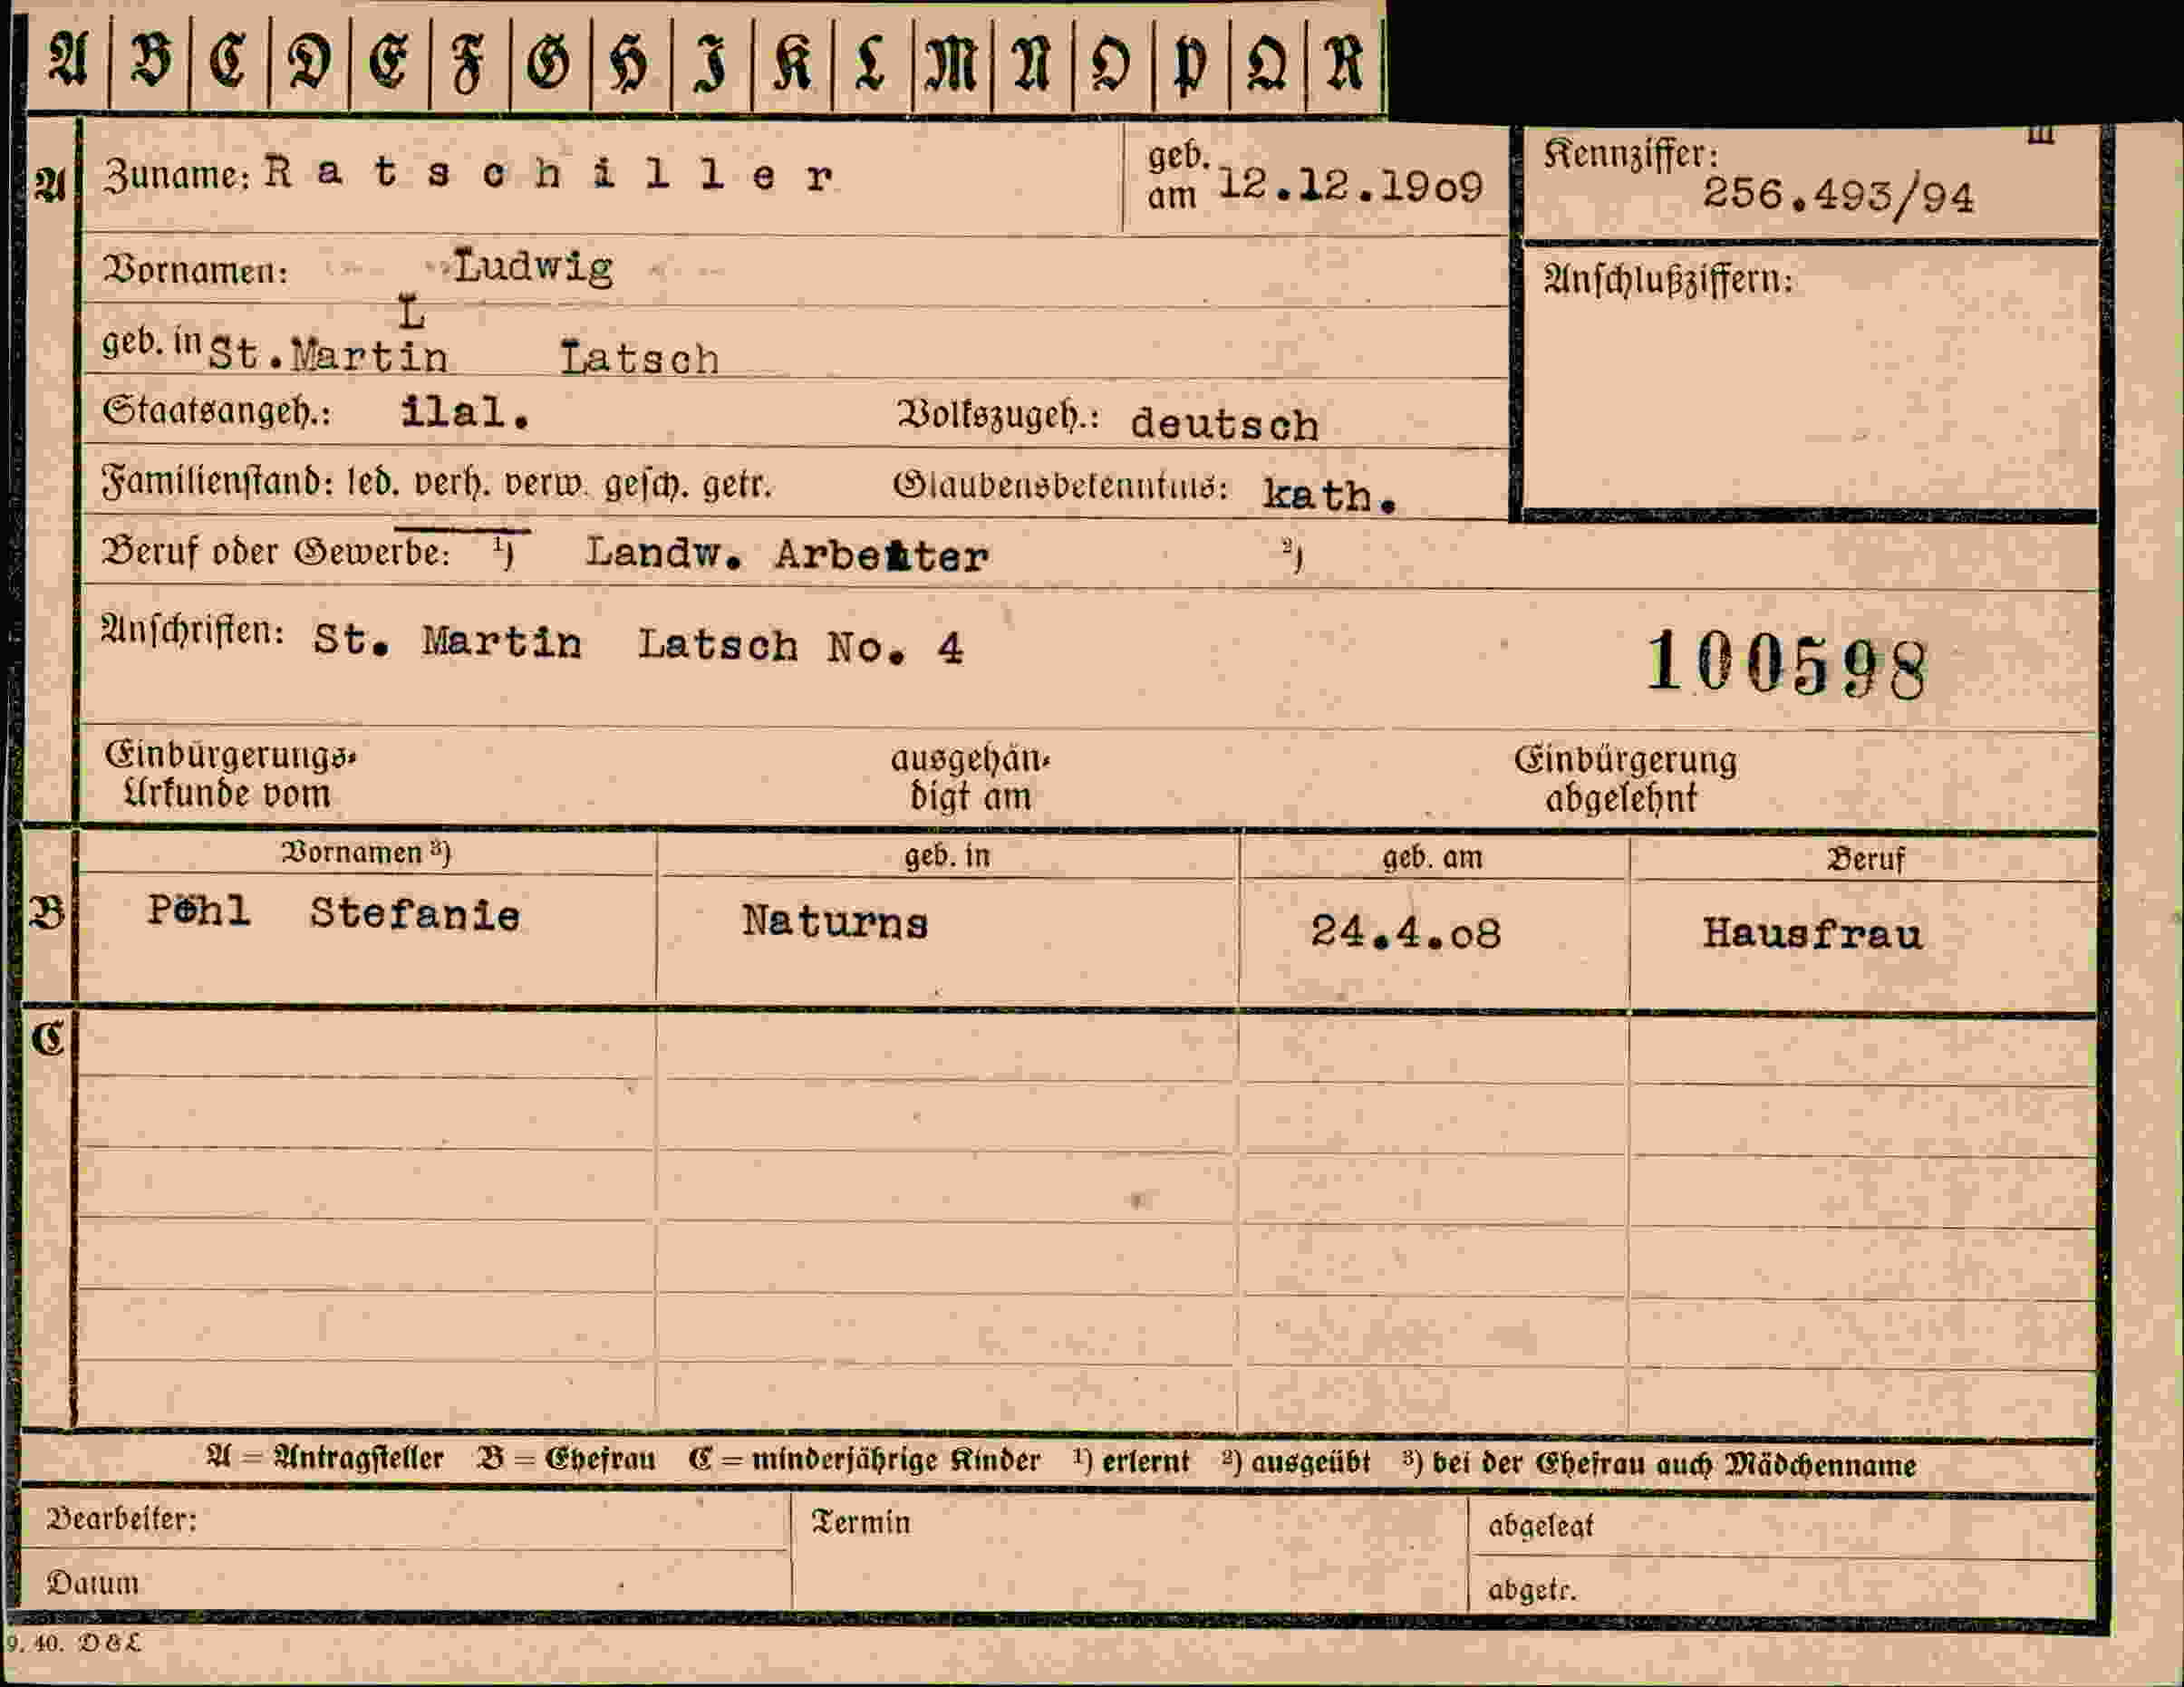 A B C D E F G H I K L M N O P Q R
A Zuname: Ratschiller geb. am 12.12.1909 Kennziffer: 256.493/94 III
Vornamen: Ludwig Anschlußziffern:
L
geb. in St.Martin Latsch
Staatsangeh.: ilal. Volkszugeh.: deutsch
Familienstand: led. verh. verw. gesch. getr. Glaubensbekenntnis: kath.
Beruf oder Gewerbe: ¹) Landw. Arbeiter ²)
Anschriften: St. Martin Latsch No. 4 100598
Einbürgerungs- ausgehän- Einbürgerung
Urkunde vom digt am abgelehnt
Vornamen ³) geb. in geb. am Beruf
B Pöhl Stefanie Naturns 24.4.08 Hausfrau
C
A = Antragsteller B = Ehefrau C = minderjährige Kinder ¹) erlernt ²) ausgeübt ³) bei der Ehefrau auch Mädchenname
Bearbeiter: Termin abgelegt
Datum abgetr.
9. 40. D & L